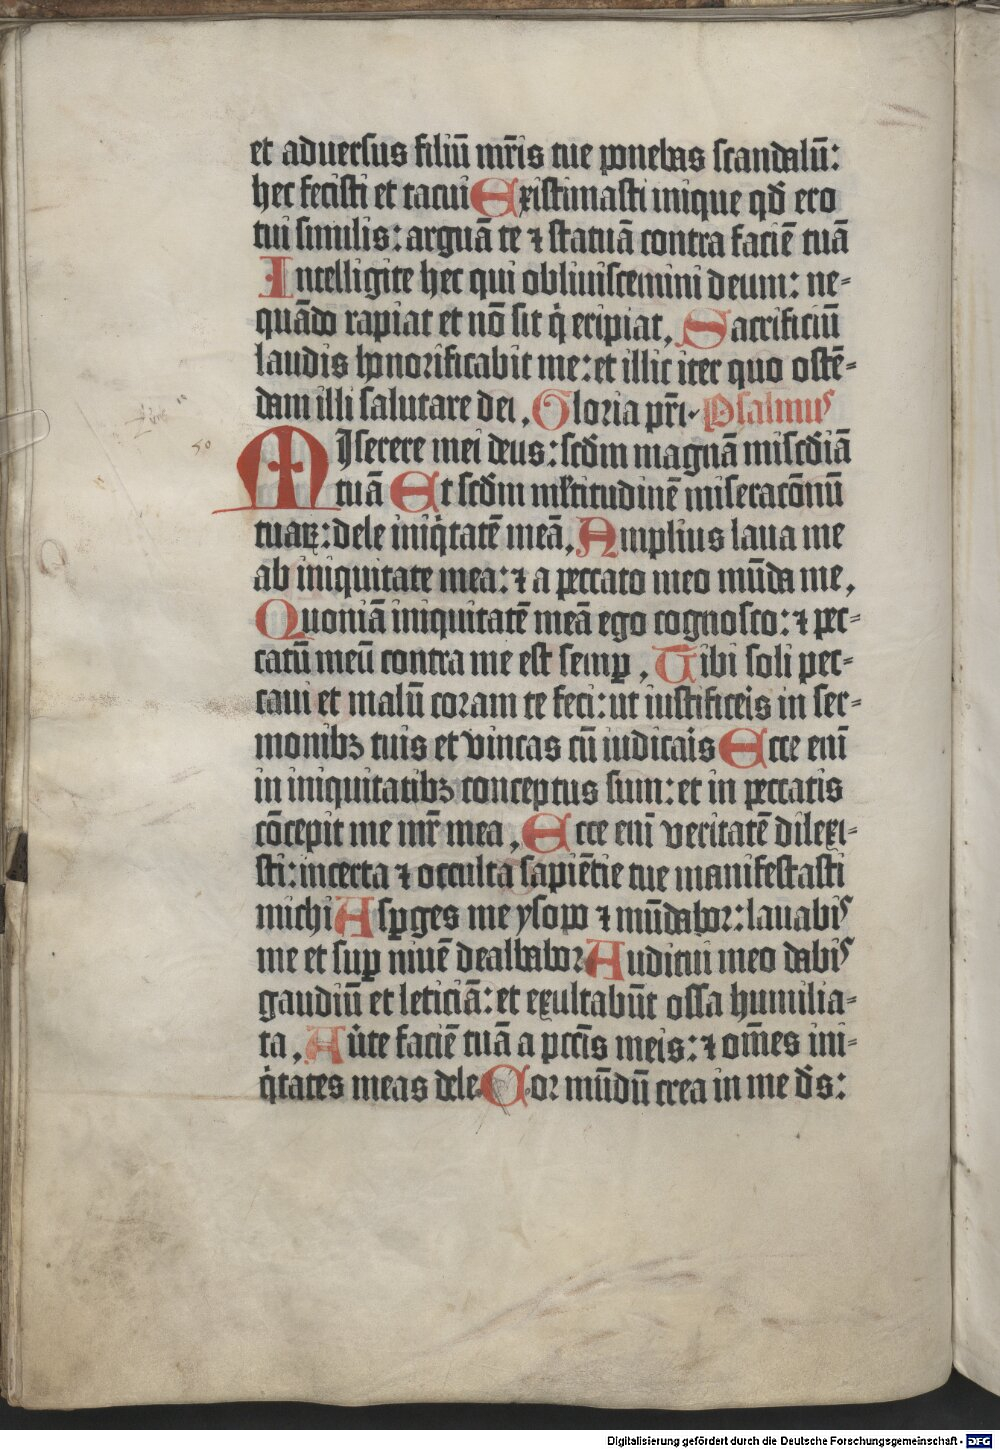 et aduersus filiū mr̄is tue ponebas scandalū:
hec fecisti et tacui Existimasti inique qd̄ ero
tui similis: arguā te ⁊ statuā contra faciē tuā
Intelligite hec qui obliuiscemini deum: ne-
quādo rapiat et nō sit q̇ eripiat, Sacrificiū
laudis honorificabit me: et illic iter quo ostē-
dam illi salutare dei, Gloria pr̄i. Psalmus
50
Miserere mei deus: scd̄m magnā misc̄diā
tuā Et scd̄m ml̄titudinē miseratōnū
tuaꝝ: dele iniq̇tatē meā, Amplius laua me
ab iniquitate mea: ⁊ a peccato meo mūda me,
Quoniā iniquitatē meā ego cognosco: ⁊ pec-
catū meū contra me est semꝑ, Tibi soli pec-
caui et malū coram te feci: ut iustificeis in ser-
monibꝫ tuis et vincas cū iudicais Ecce enī
in iniquitatibꝫ conceptus sum: et in peccatis
cōcepit me mr̄ mea, Ecce enī veritatē dilexi-
sti: incerta ⁊ occulta sapiētie tue manifestasti
michi Asꝑges me ysopo ⁊ mūdabor: lauabis
me et suꝑ niuē dealbabor Auditui meo dabis
gaudiū et leticiā: et exultabūt ossa humilia-
ta, Aūte faciē tuā a pctīs meis: ⁊ om̄es ini-
q̇tates meas dele Cor mūdū crea in me d̄s:
Digitalisierung gefördert durch die Deutsche Forschungsgemeinschaft - DFG